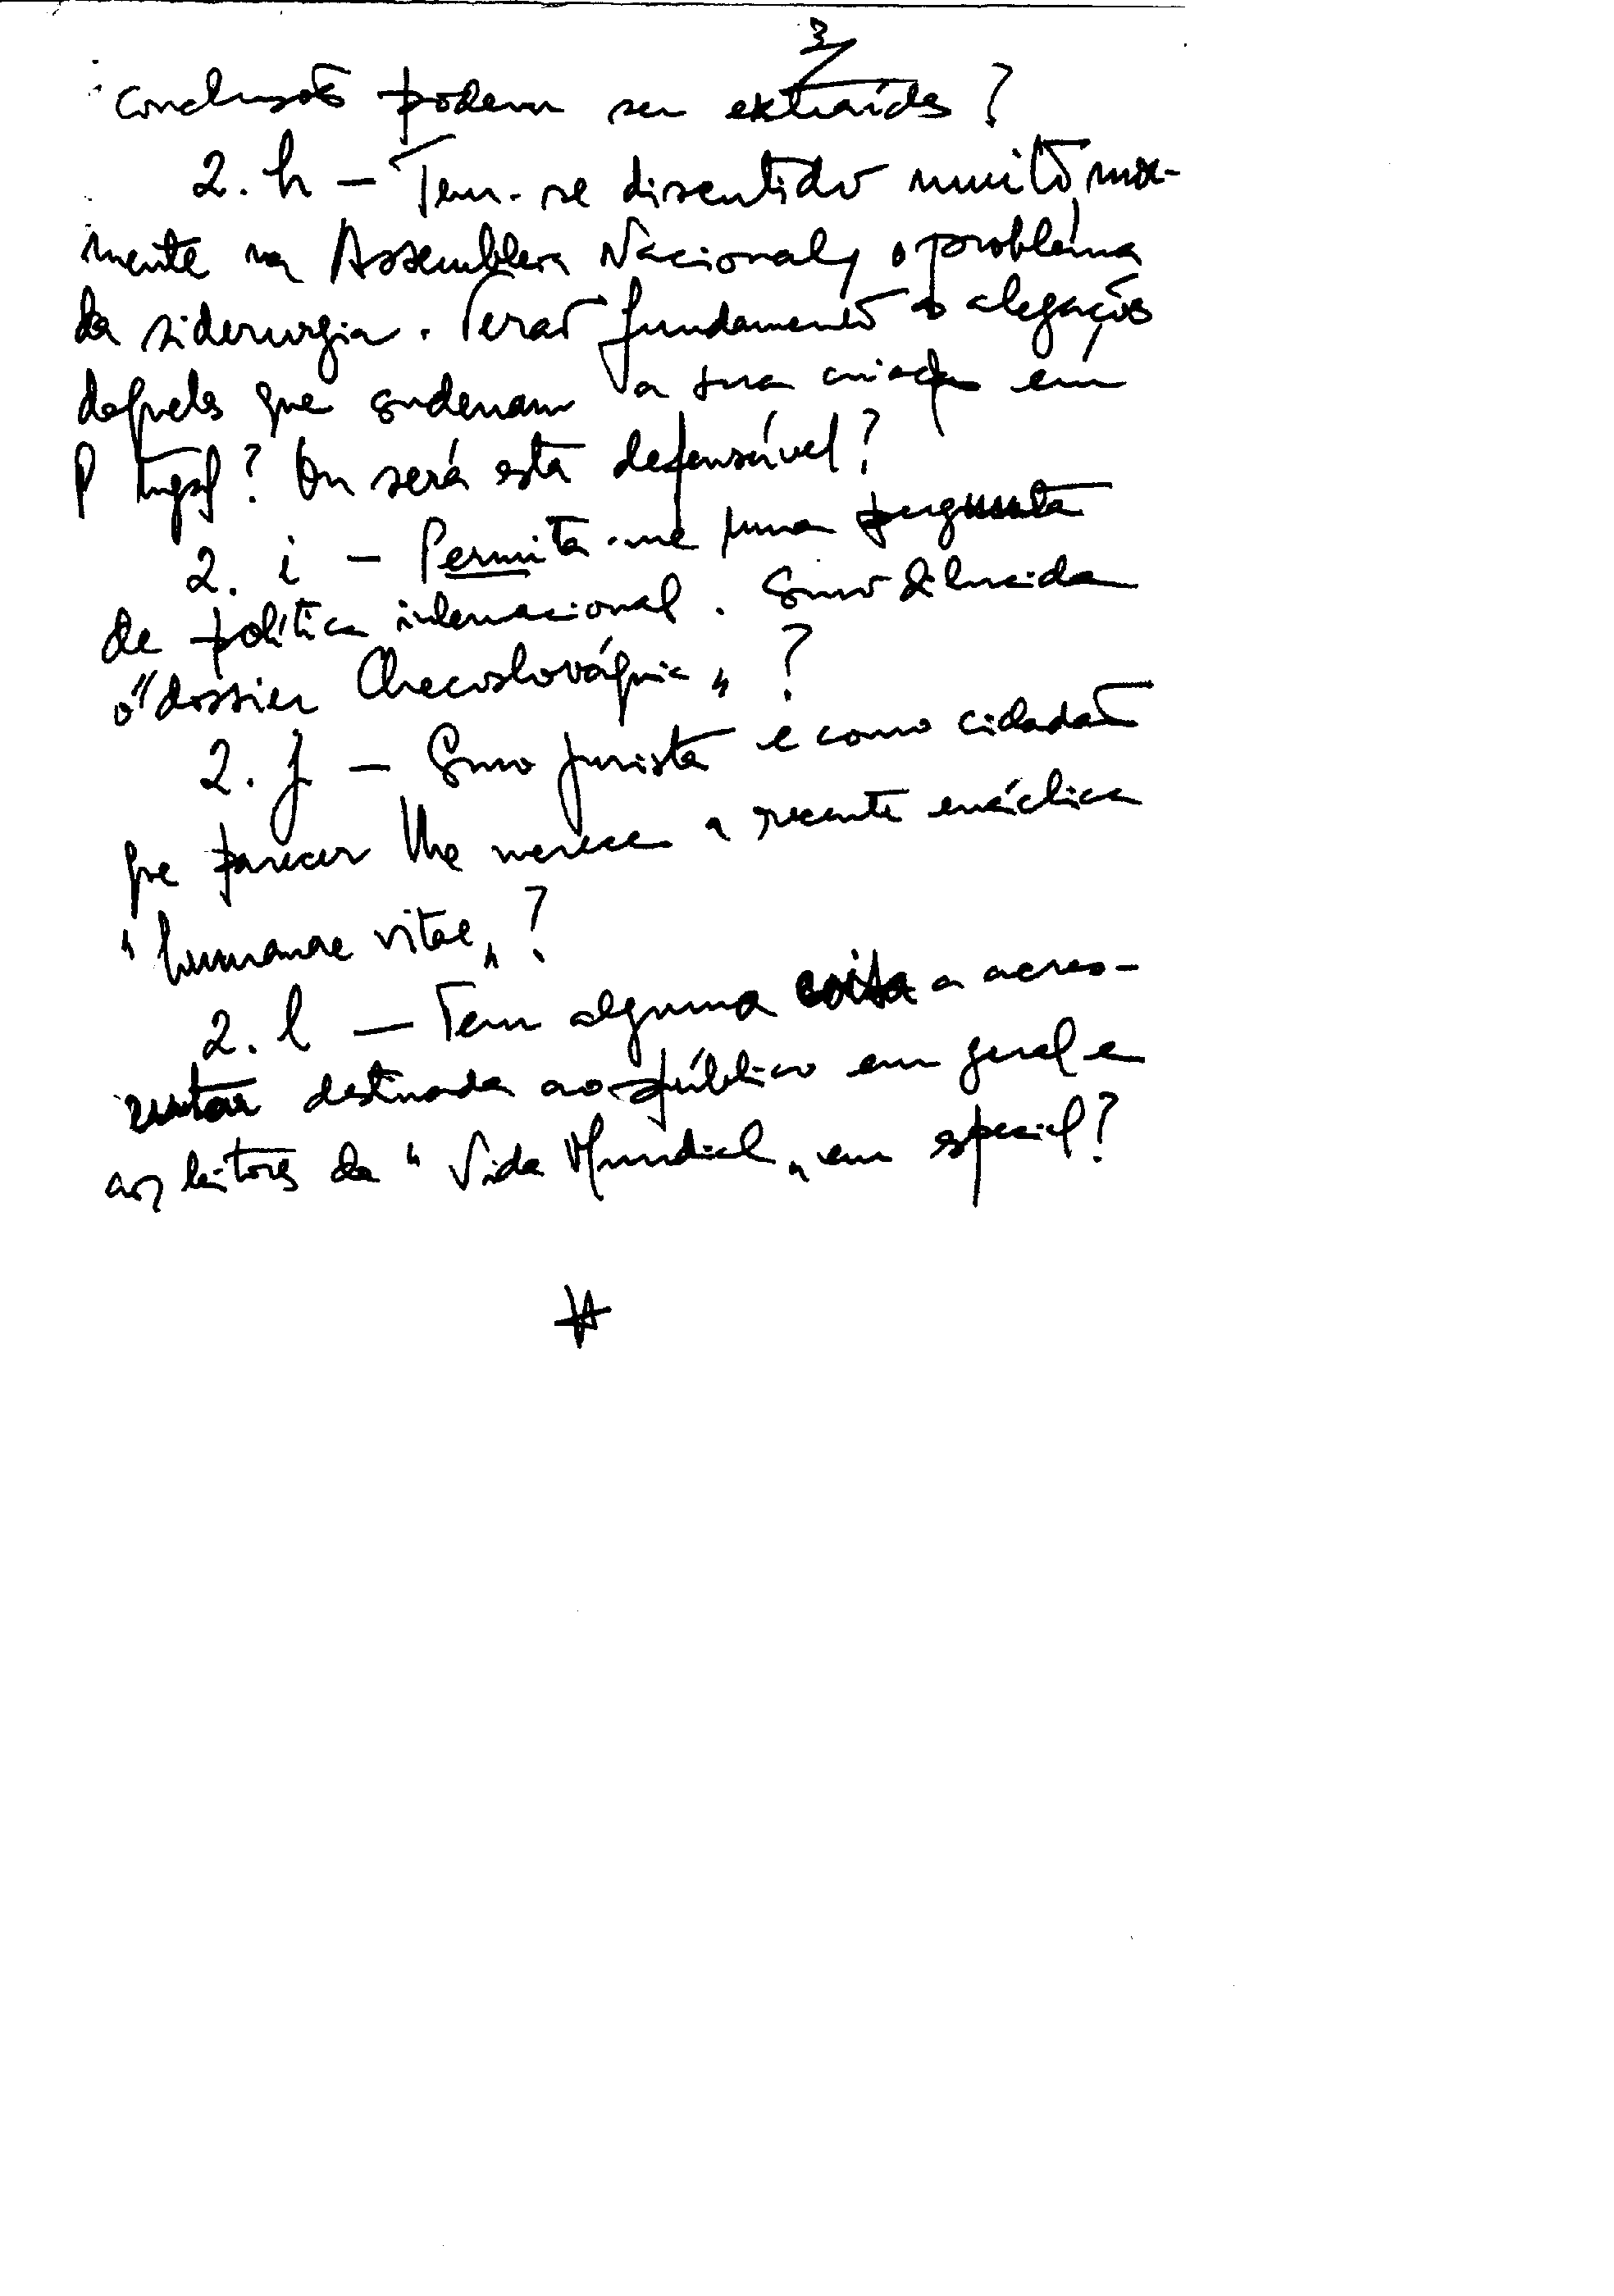 3
conclusões podem ser extraídas?
2. h — Tem-se discutido muito, mor-
mente na Assembleia Nacional, o problema
da siderurgia. Terão fundamento as alegações
daqueles que condenam a sua criação em
Portugal? Ou será esta defensável?
2. i — Permita-me uma pergunta
de política internacional. Como dilucida
o "dossier Checoslováquia"?
2. j — Como jurista e como cidadão
que parecer lhe merece a recente encíclica
"humanae vitae"?
2. l — Tem alguma coisa a acres-
centar destinada ao público em geral e
aos leitores da "Vida Mundial" em especial?